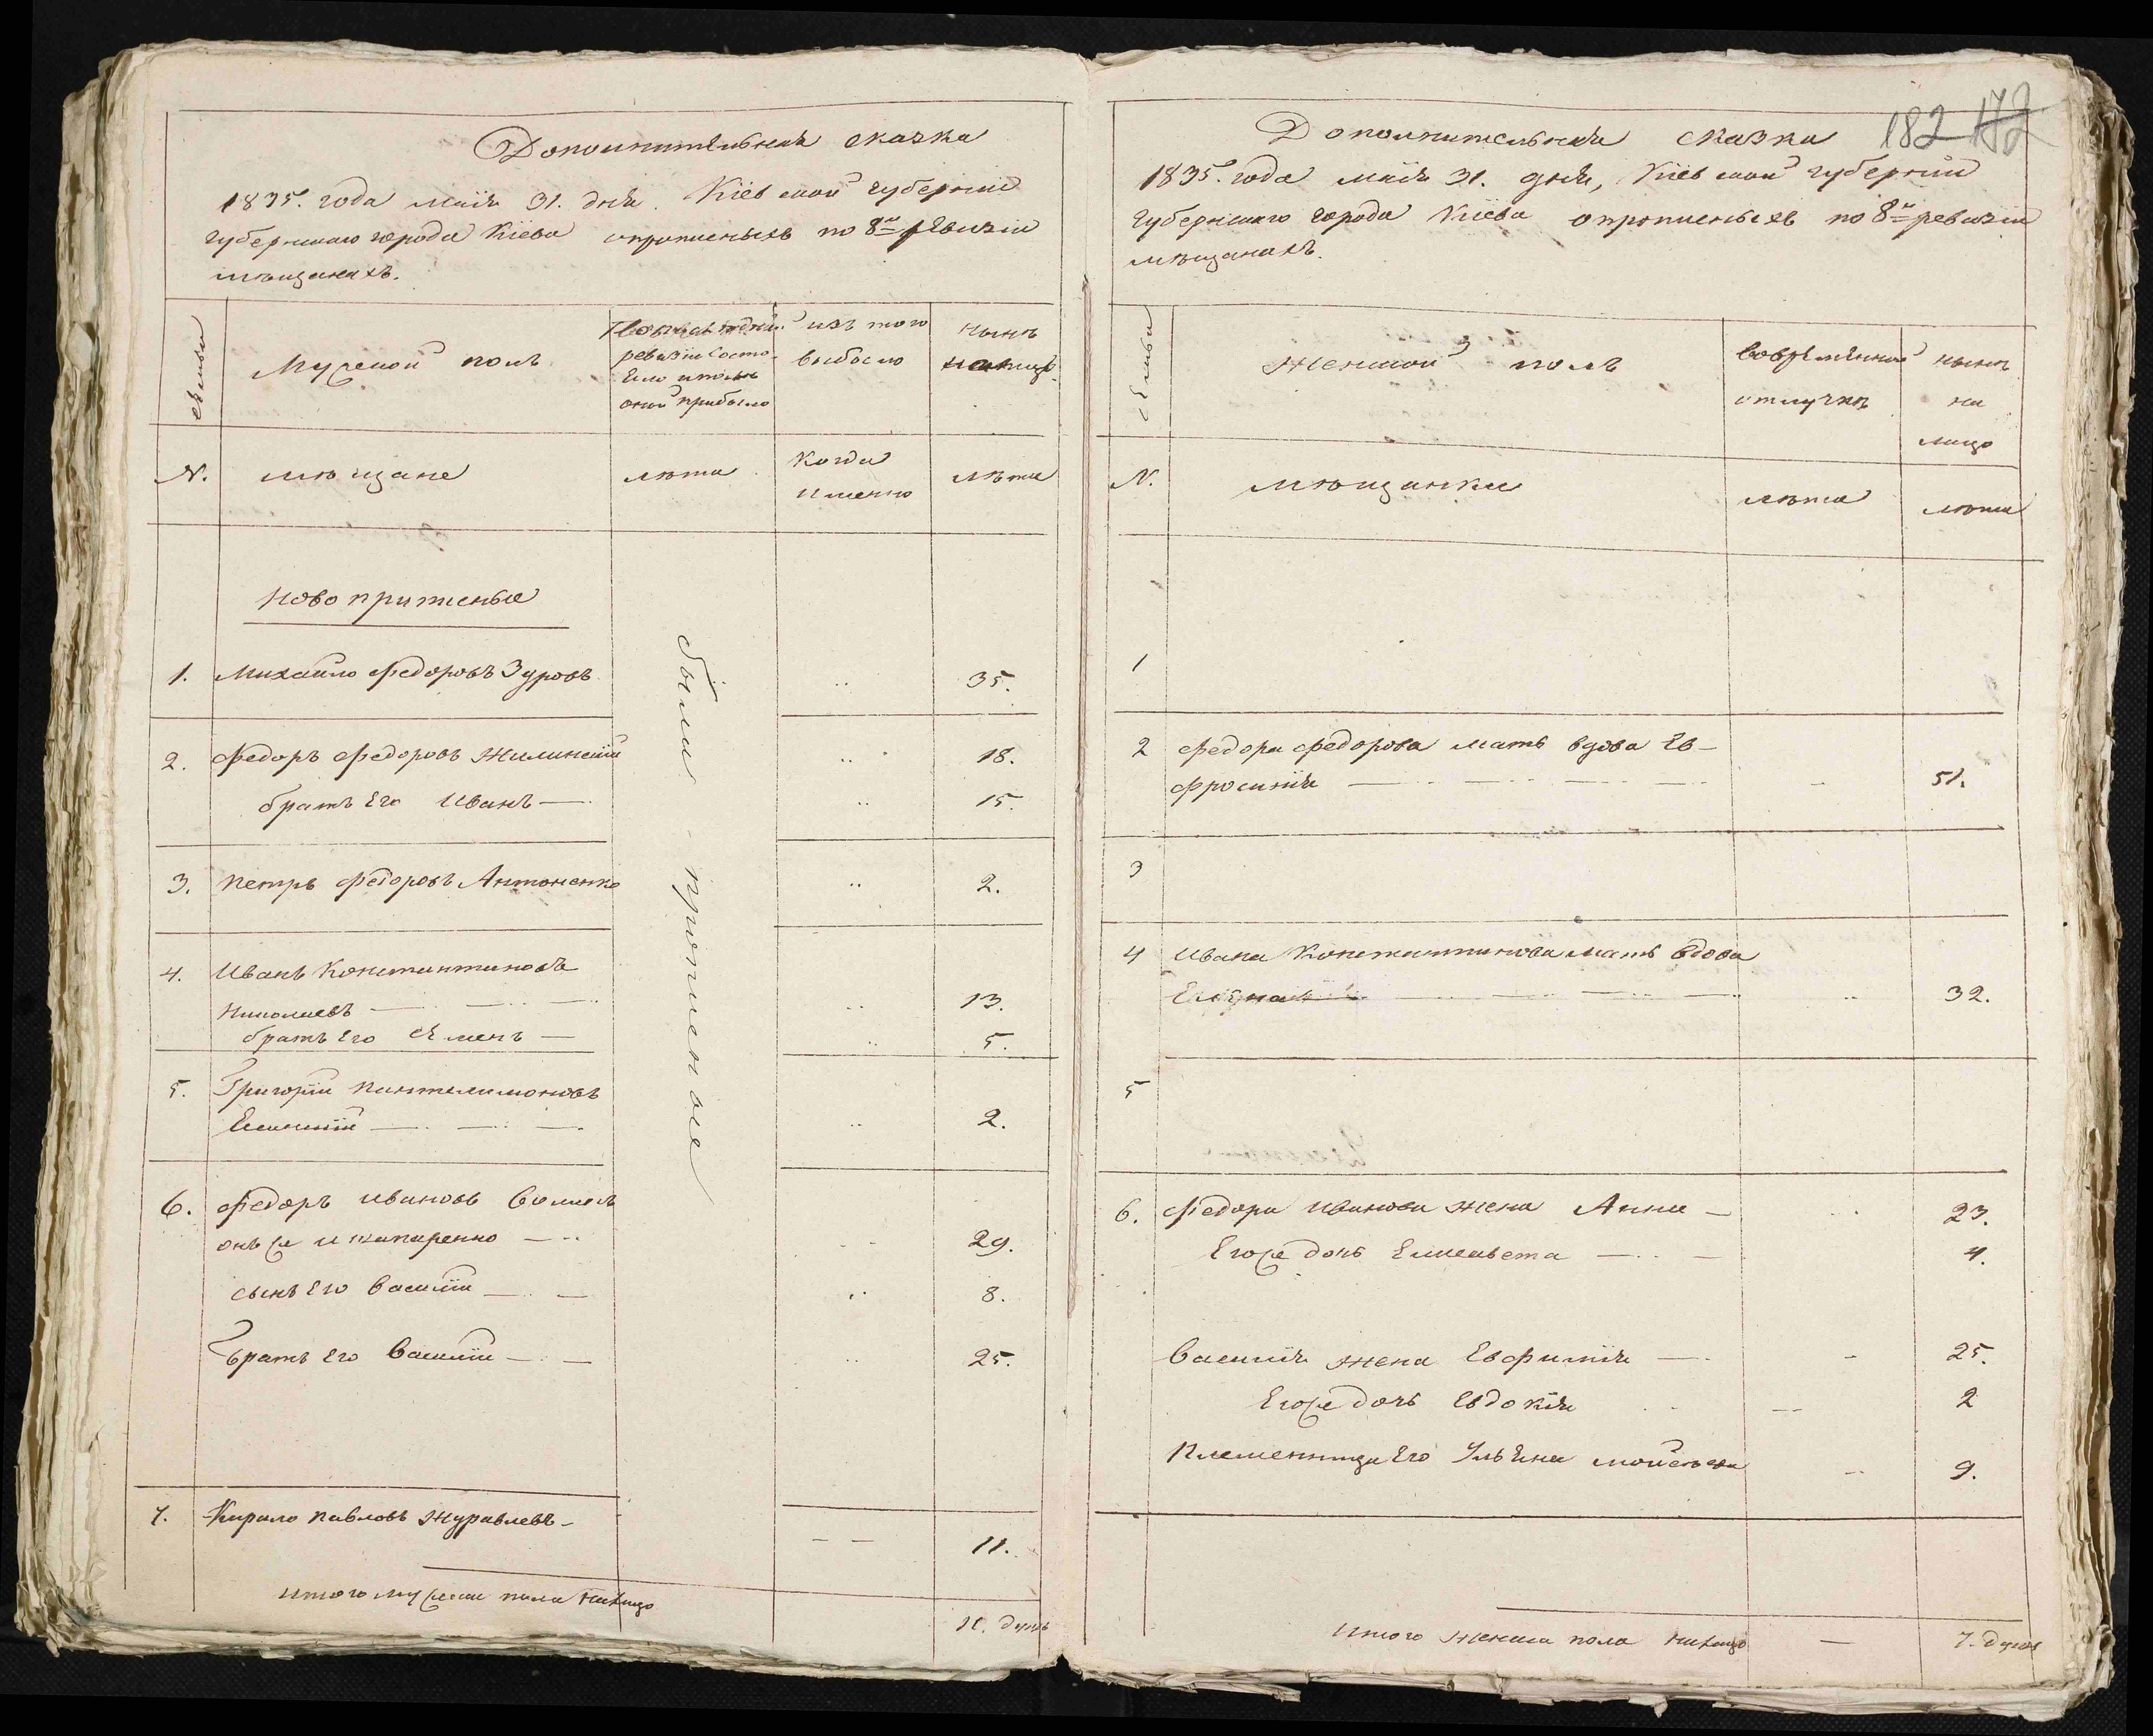 Дополнительная сказка
1835. года маія 31. дня. Кіевской губерніи
губернскаго города Кіева о прописныхъ по 8й ревизіи
мѣщанахъ.
семьи
Мужеской полъ
По последней
ревизіи состо-
яло и после
оной прибыло
изъ того
выбыло
нынѣ
налицо
N.
мѣщане
лѣта
Когда
именно
лѣта
новопрописные
были прописные
1. Михайло Федоровъ Зуровъ .. 35.
2. Федоръ Федоровъ Жилинскій .. 18.
братъ его Иванъ — .. 15.
3. Петръ Федоровъ Антоненко .. 2.
4. Иванъ Константиновъ
Николаевъ — .. 13.
братъ его Семенъ — .. 5.
5. Григорій Пантелимоновъ
— .. 2.
6. Федоръ Ивановъ
онъ же и — 29.
сынъ его Василій — .. 8.
братъ его Василій — .. 25.
7. Кирило Павловъ Журавлевъ - — — 11.
итого мужеска пола налицо 11. душъ
182 172
Дополнительная сказка
1835. года маія 31. дня, Кіевской губерніи
губернскаго города Кіева о прописныхъ по 8й ревизіи
мѣщанахъ.
семьи
Женской полъ
во временной
отлучкѣ
нынѣ
на
лицо
N.
мѣщанки
лѣта
лѣта
1
2 Федора Федорова мать вдова Ев-
фросинія — — 51.
3
4 Ивана Константинова мать вдова
.. 32.
5
6. Федора Иванова жена Анна — .. 23.
Егоже дочь Елисавета — 4.
Василія жена Евфимія — - 25.
Егоже дочь Евдокія — 2
Племенница его Ульяна — 9.
итого женска пола налицо — 7. душъ